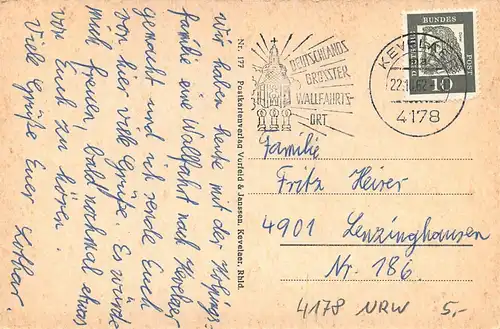 Wir haben heute mit der
familie eine Wallfahrt nach Kevelaer
gemacht und ich sende Euch
von hier viele Grüße. Es würde
mich freuen, bald nochmal etwas
von Euch zu hören.
Viele Grüße Euer Lothar.
Nr. 177 Postkartenverlag Vorfeld & Janssen, Kevelaer, Rhld.
DEUTSCHLANDS
GRÖSSTER
WALLFAHRTS-
ORT
KEVELAER
22.
62-
4178
BUNDES
POST
10
Familie
Fritz Heiser
4901 Lenzinghausen
Nr. 186
4178 NRW 5,-